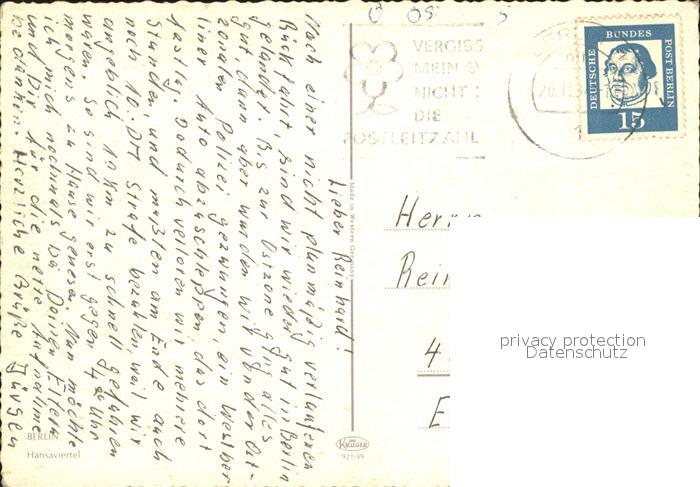 Lieber Reinhard!
Nach einer nicht planmäßig verlaufenen
Rückfahrt, sind wir wieder gut in Berlin
gelandet. Bis zur Ostzone ging alles
gut, dann aber wurden wir von der Ost-
zonalen Polizei gezwungen, ein Westber
liner Auto abzuschleppen, das dort
fastlag. Dadurch verloren wir mehrere
Stunden, und mußten am Ende auch
noch 10.- DM Strafe bezahlen, weil wir
angeblich 10 Km zu schnell gefahren
waren. So sind wir erst gegen Uhr
morgens zu Hause gewesen. Nun möchte
ich mich nochmals bei Deinen Eltern
und Dir für die nette Aufnahme
bedanken. Herzliche Grüße Jürgen
BERLIN
Hansaviertel
Made in Western Germany
Krüger
921/49
VERGISS
MEIN
NICHT
DIE
POSTLEITZAHL
DEUTSCHE
BUNDES
POST BERLIN
15
Herrn
Rein
4
E
privacy protection
Datenschutz